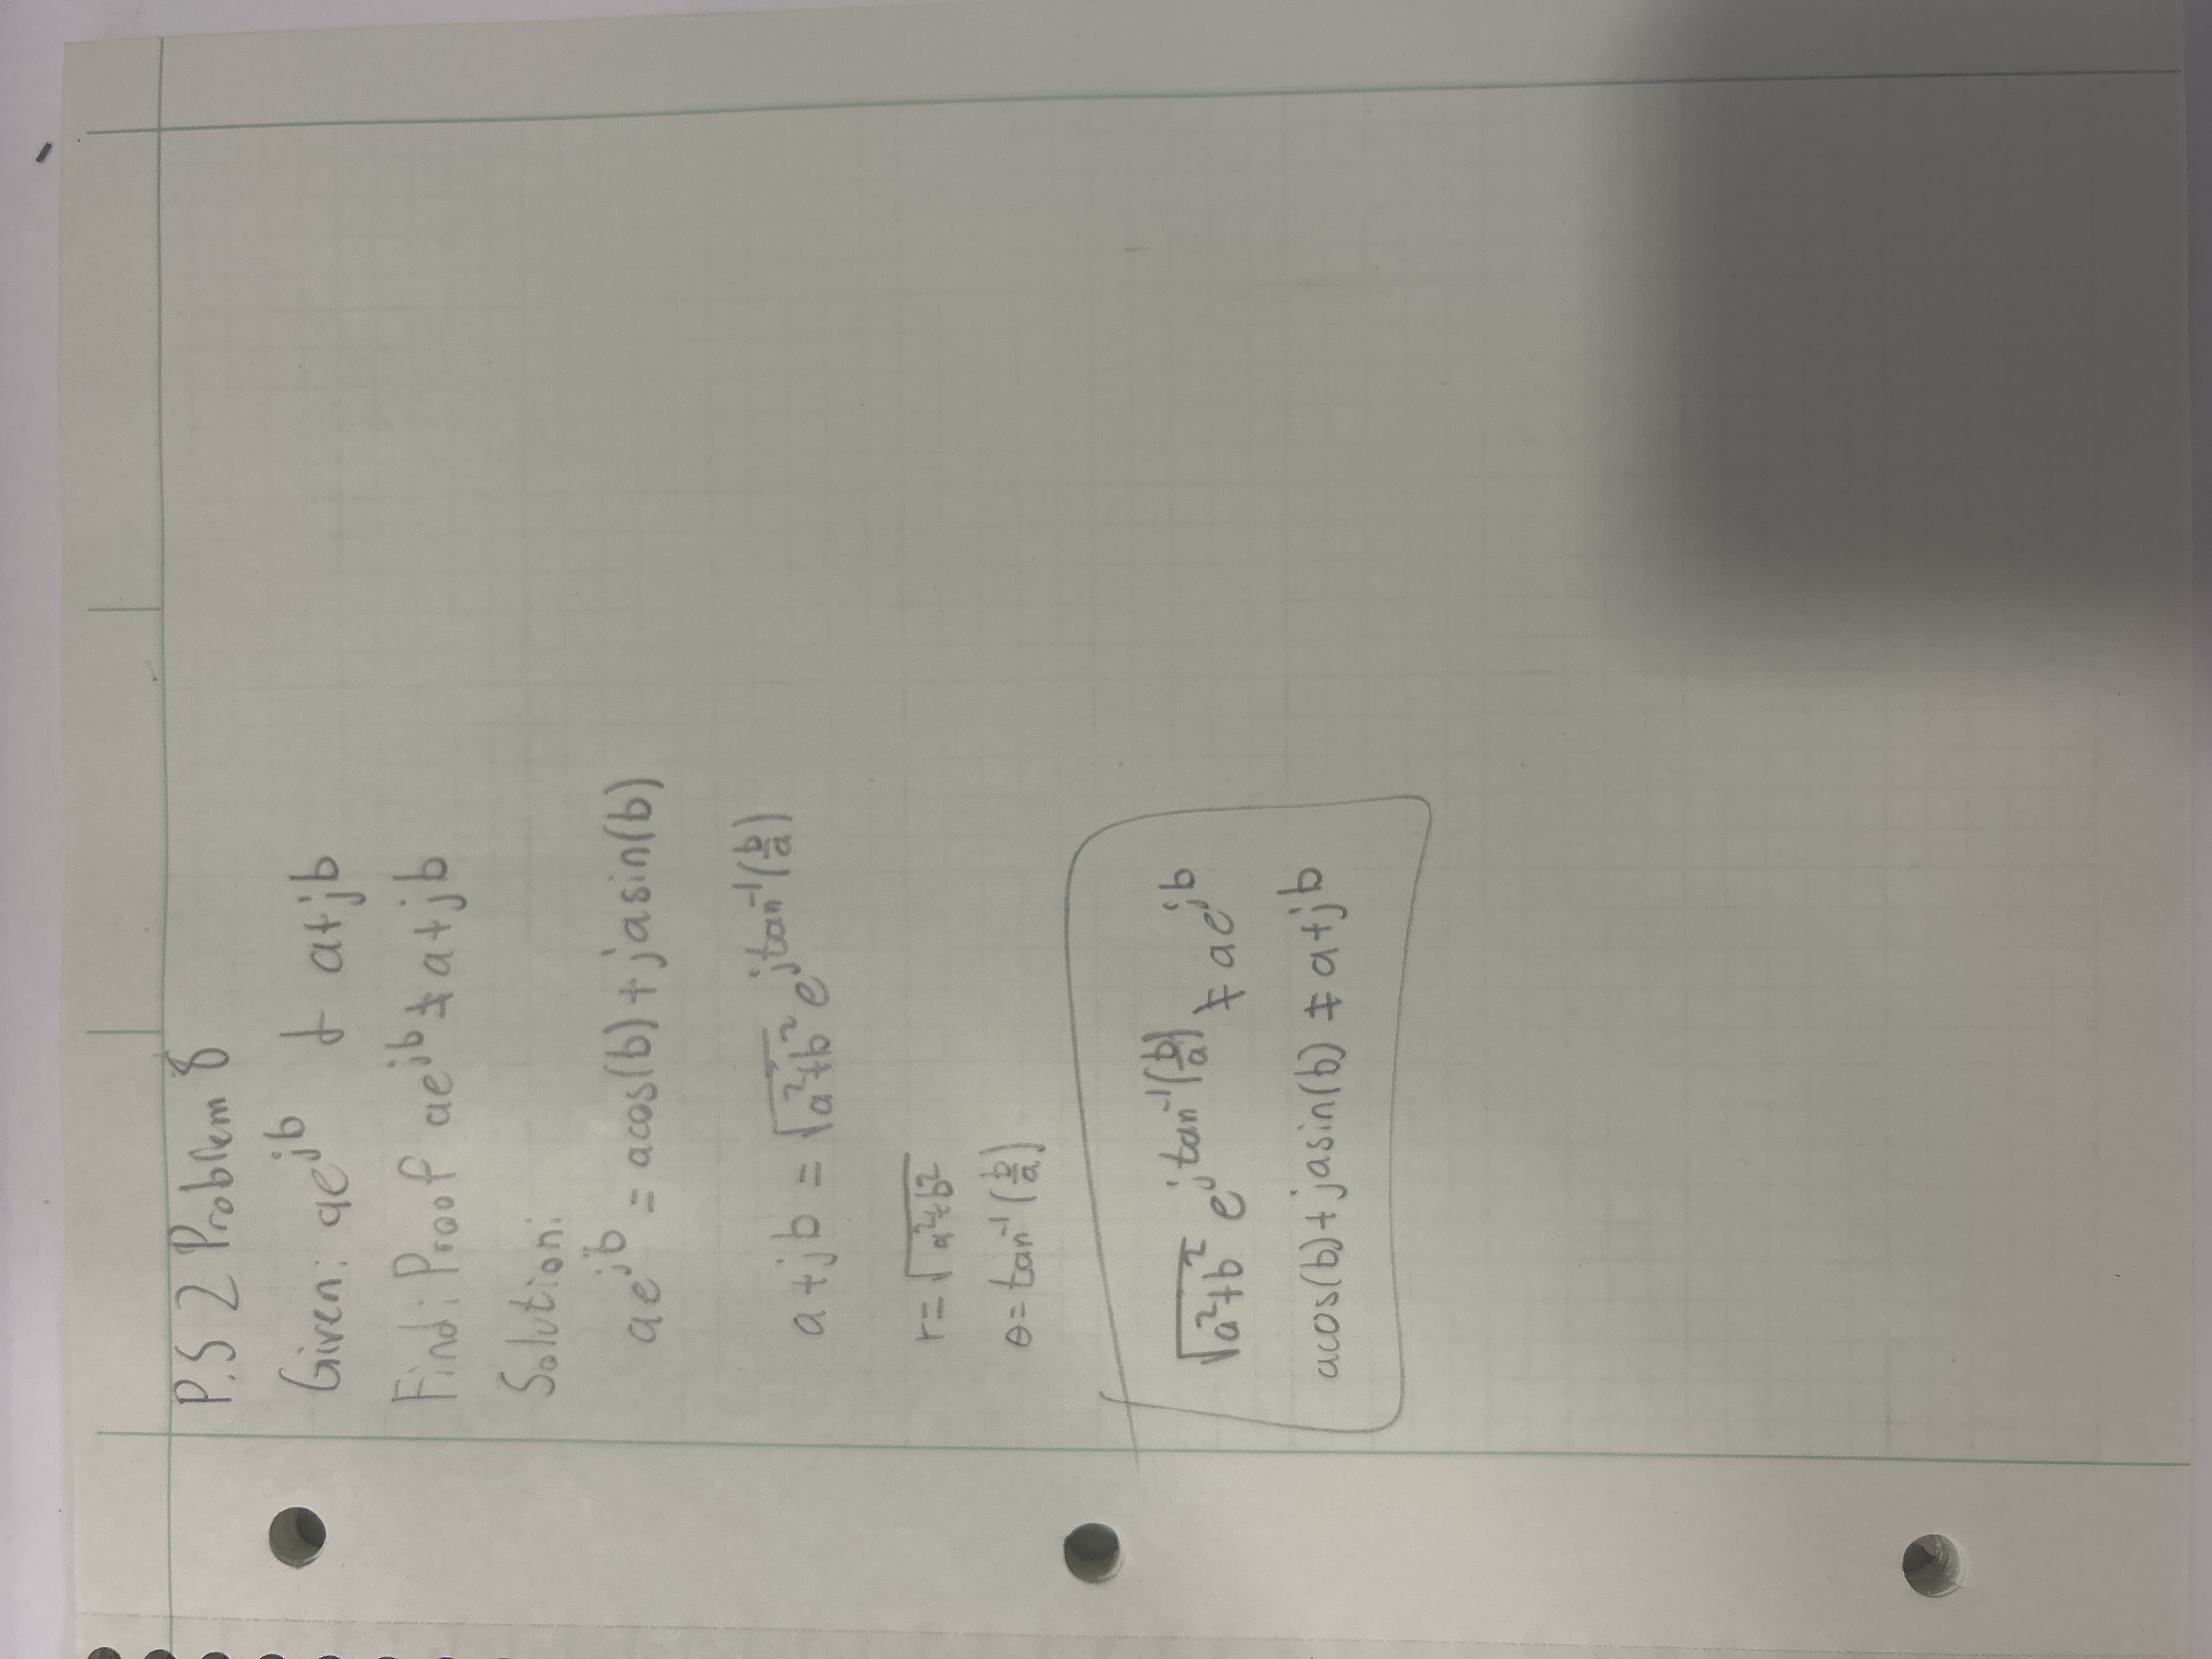 P.S 2 Problem 8
Given: ae^{jb} & a+jb
Find: Proof ae^{jb} ≠ a+jb
Solution:
ae^{jb} = acos(b) + jasin(b)
a+jb = √(a²+b²) e^{jtan⁻¹(b/a)}
r = √(a²+b²)
θ = tan⁻¹(b/a)
√(a²+b²) e^{jtan⁻¹(b/a)} ≠ ae^{jb}
acos(b)+jasin(b) ≠ a+jb